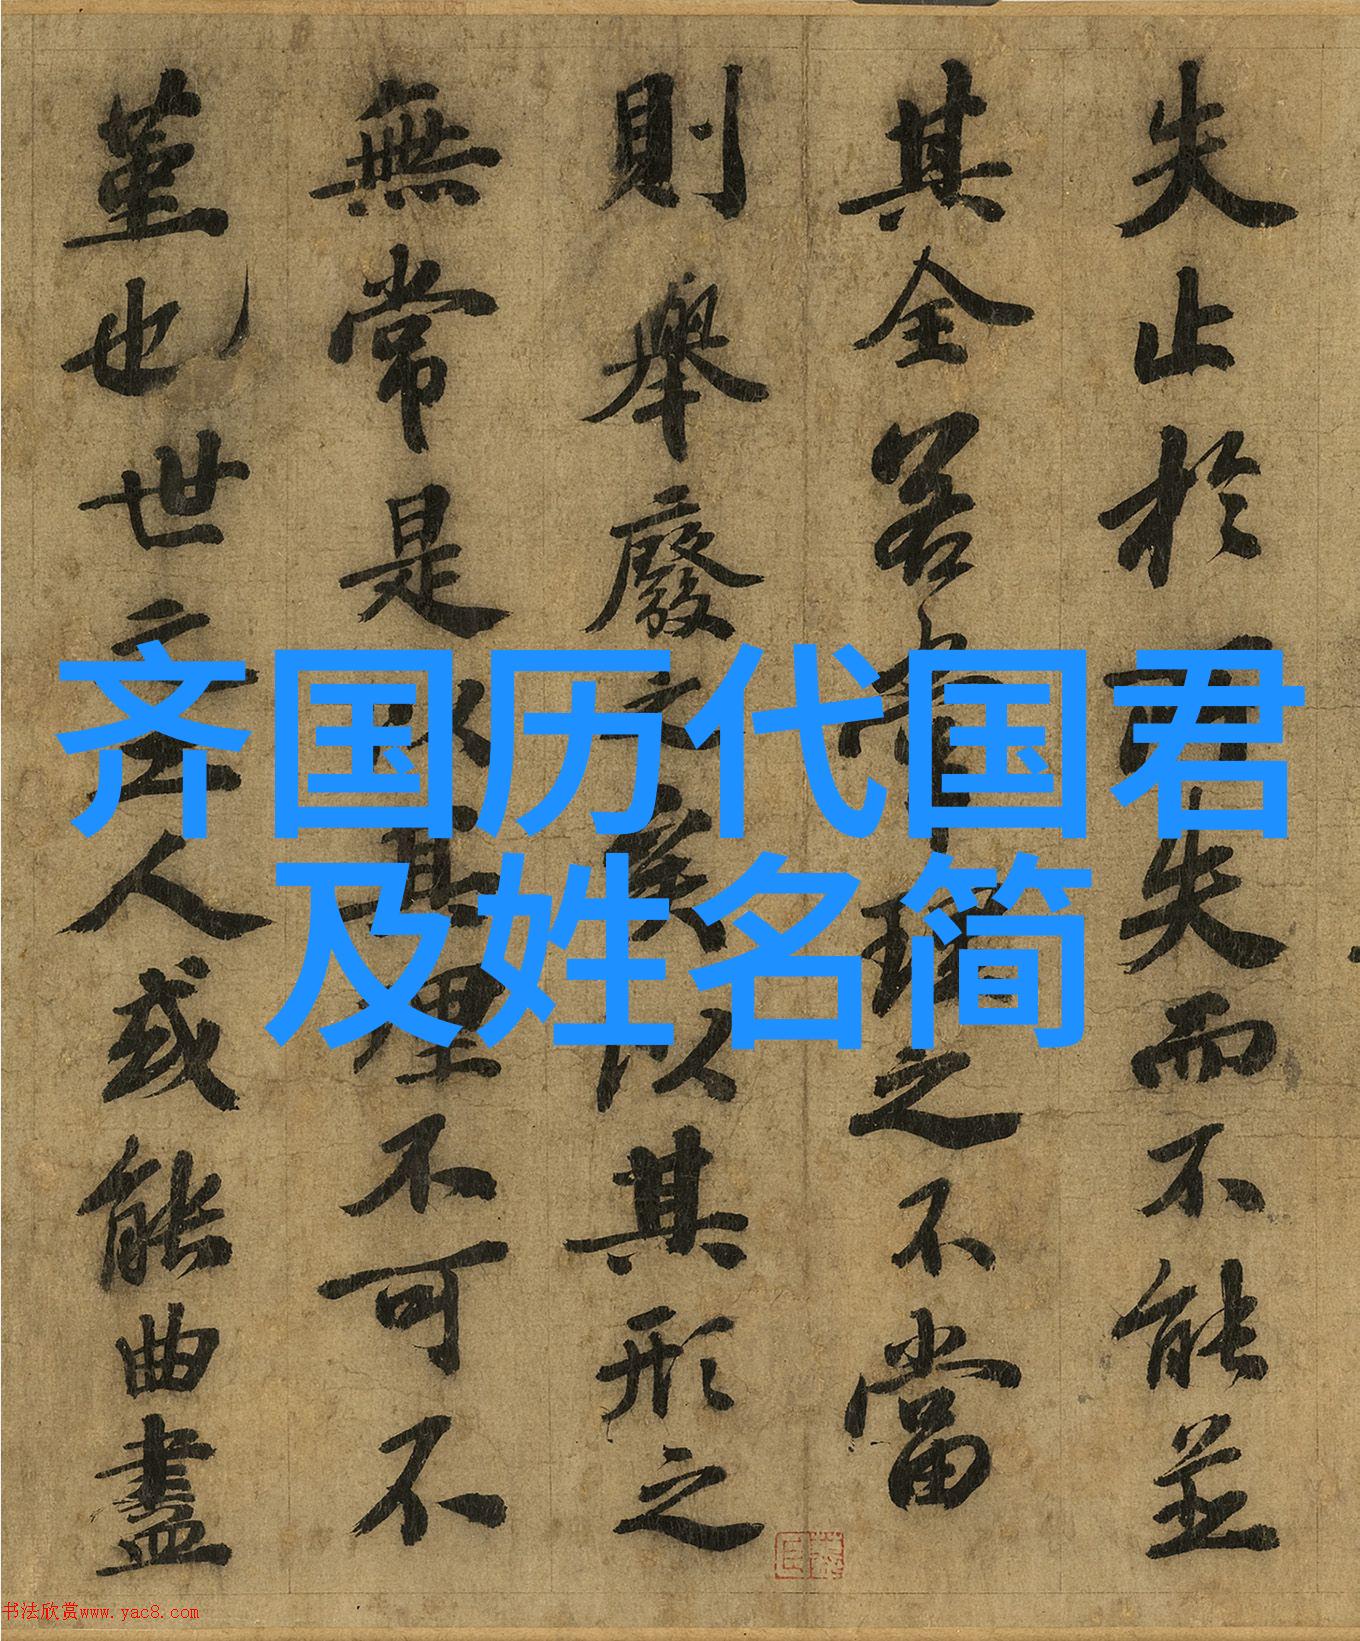 失止於所失而不能並
其全若常理之不當
則舉廢之矣以其形之
無常是以其理不可不
堇也世之工人或能曲盡
齐国历代国君
及姓名简
书法欣赏www.yac8.com